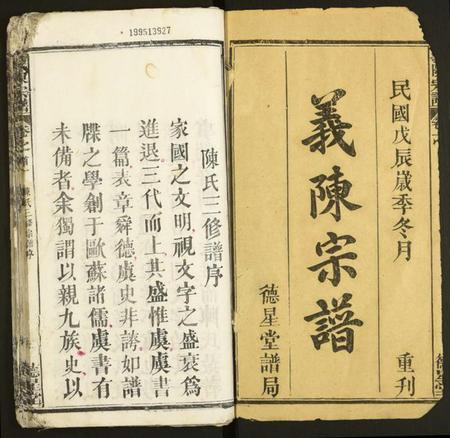 民國戊辰歲季冬月
重刊
義陳宗譜
德星堂譜局
199513927
陳氏三修譜序
家國之文明視文字之盛衰爲
進退三代而上其盛惟虞虞書
一篇表章舜德虞史非誇如譜
牒之學創于歐蘇諸儒虞書有
未備者余獨謂以親九族史以